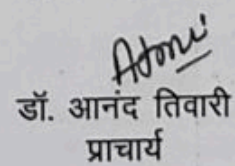 डॉ. आनंद तिवारी
प्राचार्य